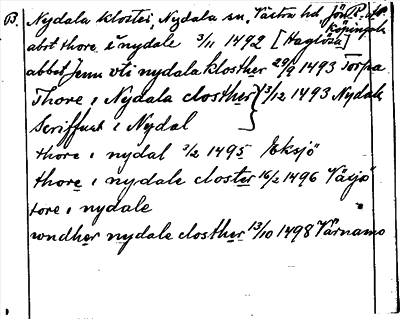 B. Nydala kloster, Nydala sn, Västra hd Jön
köpings
abot thore i nydale 3/11 1492 [Haglösa]
abbet Jenu vti nydala klosther 29/9 1493 Torpa
Thore i Nydala closther } 13/12 1493 Nydala
Seriffuat i Nydal
thore i nydal 3/2 1495 Eksjö
thore i nydale closter 16/2 1496 Växjö
tore i nydale
wndher nydale closther 13/10 1498 Värnamo